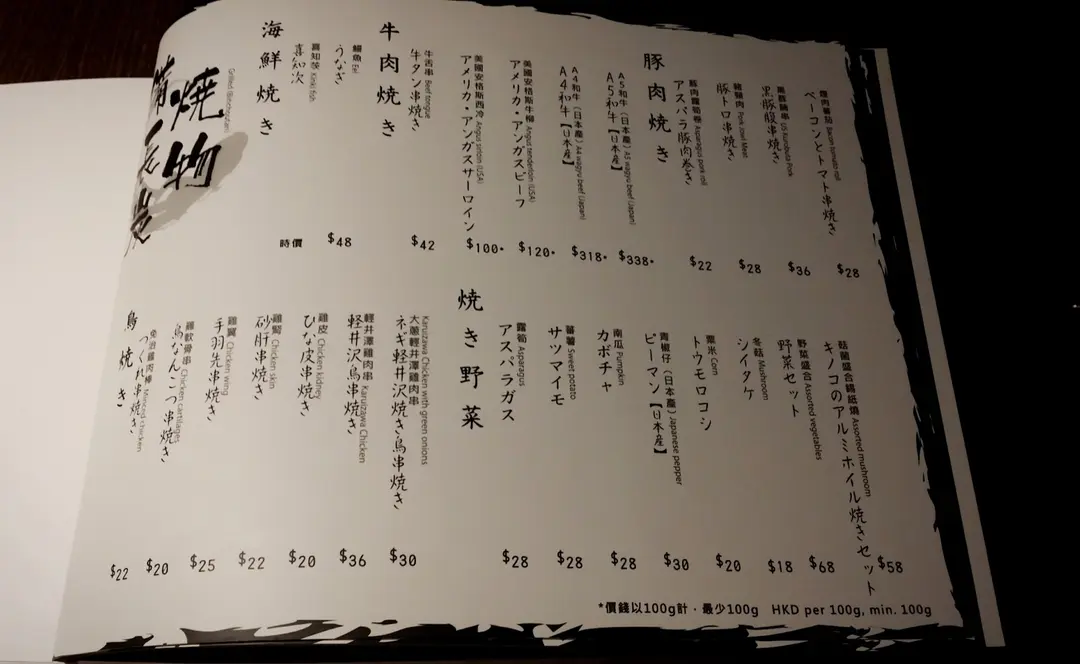 焼物
備長炭
Grilled (Binchoutan)
海鮮焼き
喜知茨 Kinki fish
喜知次
時價
鰻魚 Eel
うなぎ
$48
牛肉焼き
牛舌串 Beef tongue
牛タン串焼き
$42
美國安格斯西冷 Angus sirloin (USA)
アメリカ・アンガスサーロイン
$100*
美國安格斯牛柳 Angus tenderloin (USA)
アメリカ・アンガスビーフ
$120*
A4和牛（日本產）A4 wagyu beef (Japan)
A4和牛【日本産】
$318*
A5和牛（日本產）A5 wagyu beef (Japan)
A5和牛【日本産】
$338*
豚肉焼き
豚肉露筍卷 Asparagus pork roll
アスパラ豚肉巻き
$22
豬頸肉 Pork Jowl Meat
豚トロ串焼き
$28
黑豚腩串 US Kurobuta Pork
黒豚腹串焼き
$36
煙肉蕃茄 Bacon tomato roll
ベーコンとトマト串焼き
$28
鳥焼き
免治雞肉棒 Minced chicken
つくね串焼き
$22
雞軟骨串 Chicken cartilages
鳥なんこつ串焼き
$20
雞翼 Chicken wing
手羽先串焼き
$25
雞腎 Chicken skin
砂肝串焼き
$22
雞皮 Chicken kidney
ひな皮串焼き
$20
輕井澤雞肉串 Karuizawa Chicken
軽井沢鳥串焼き
$36
大蔥輕井澤雞肉串 Karuizawa Chicken with green onions
ネギ軽井沢焼き鳥串焼き
$30
焼き野菜
露筍 Asparagus
アスパラガス
$28
蕃薯 Sweet potato
サツマイモ
$28
南瓜 Pumpkin
カボチャ
$28
青椒仔（日本產）Japanese pepper
ピーマン【日本産】
$30
粟米 Corn
トウモロコシ
$20
冬菇 Mushroom
シイタケ
$18
野菜盛合 Assorted vegetables
野菜セット
$68
菇菌盛合錫紙燒 Assorted mushroom
キノコのアルミホイル焼きセット
$58
*價錢以100g計・最少100g HKD per 100g, min. 100g